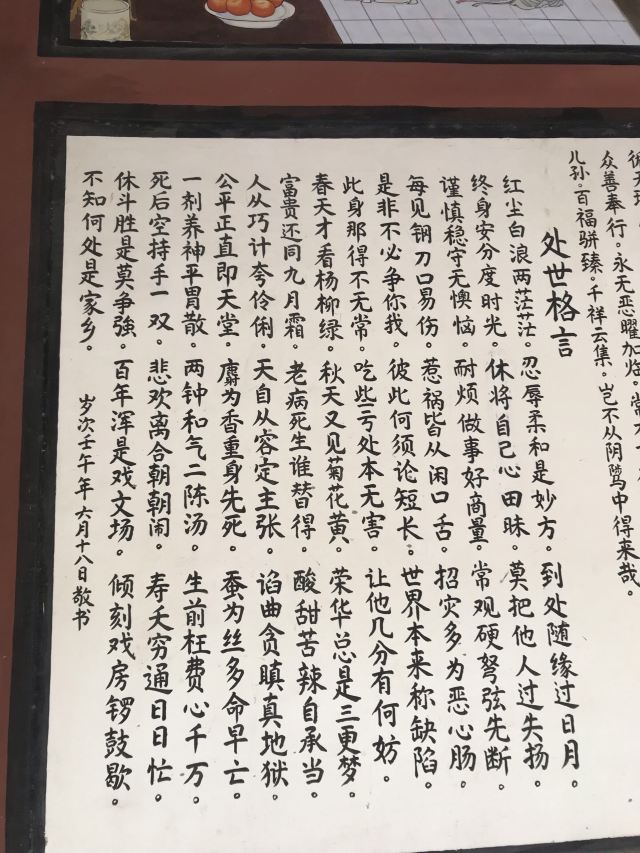 众善奉行。永无恶曜加临。常
儿孙。百福骈臻。千祥云集。岂不从阴骘中得来哉。
处世格言
红尘白浪两茫茫。忍辱柔和是妙方。到处随缘过日月。
终身安分度时光。休将自己心田昧。莫把他人过失扬。
谨慎稳守无懊恼。耐烦做事好商量。常观硬弩弦先断。
每见钢刀口易伤。惹祸皆从闲口舌。招灾多为恶心肠。
是非不必争你我。彼此何须论短长。世界本来称缺陷。
此身那得不无常。吃些亏处本无害。让他几分有何妨。
春天才看杨柳绿。秋天又见菊花黄。荣华总是三更梦。
富贵还同九月霜。老病死生谁替得。酸甜苦辣自承当。
人从巧计夸伶俐。天自从容定主张。谄曲贪瞋真地狱。
公平正直即天堂。麝为香重身先死。蚕为丝多命早亡。
一剂养神平胃散。两钟和气二陈汤。生前枉费心千万。
死后空持手一双。悲欢离合朝朝闹。寿夭穷通日日忙。
休斗胜是莫争強。百年浑是戏文场。倾刻戏房锣鼓歇。
不知何处是家乡。岁次壬午年六月十八日敬书